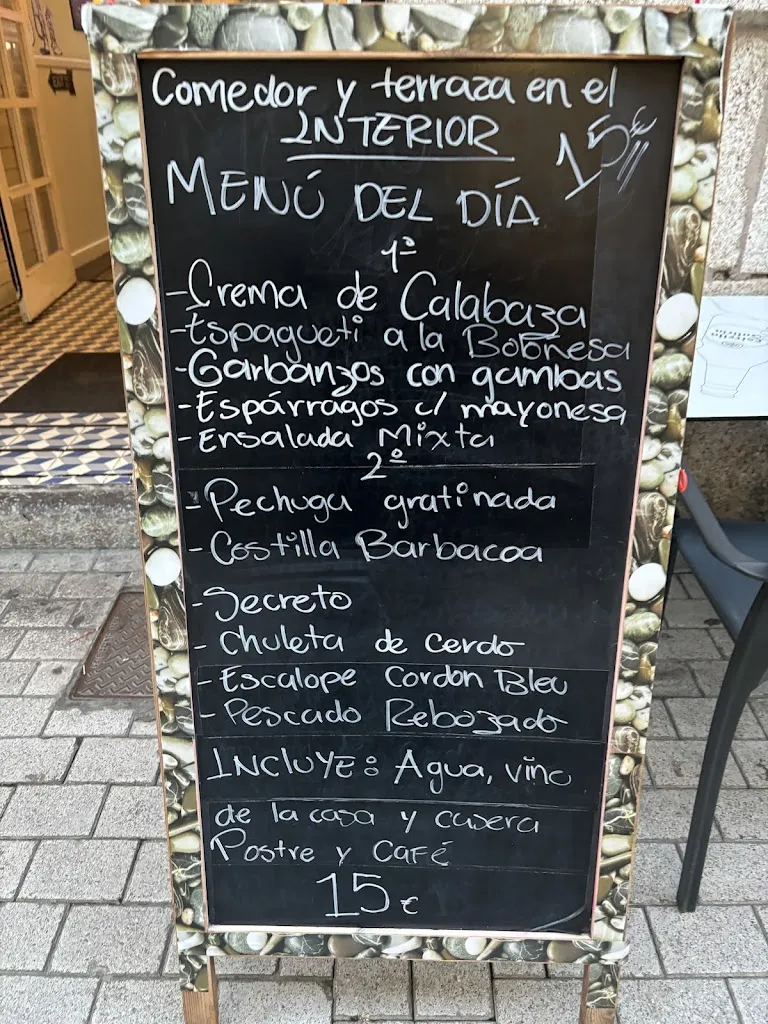 Comedor y terraza en el
INTERIOR
15€
MENÚ DEL DÍA
1º
- Crema de Calabaza
- Espagueti a la Boloñesa
- Garbanzos con gambas
- Espárragos c/ mayonesa
- Ensalada Mixta
2º
- Pechuga gratinada
- Costilla Barbacoa
- Secreto
- Chuleta de Cerdo
- Escalope Cordon Bleu
- Pescado Rebozado
INCLUYE: Agua, vino
de la casa y casera
Postre y CAFÉ
15€
Estrella
Galicia